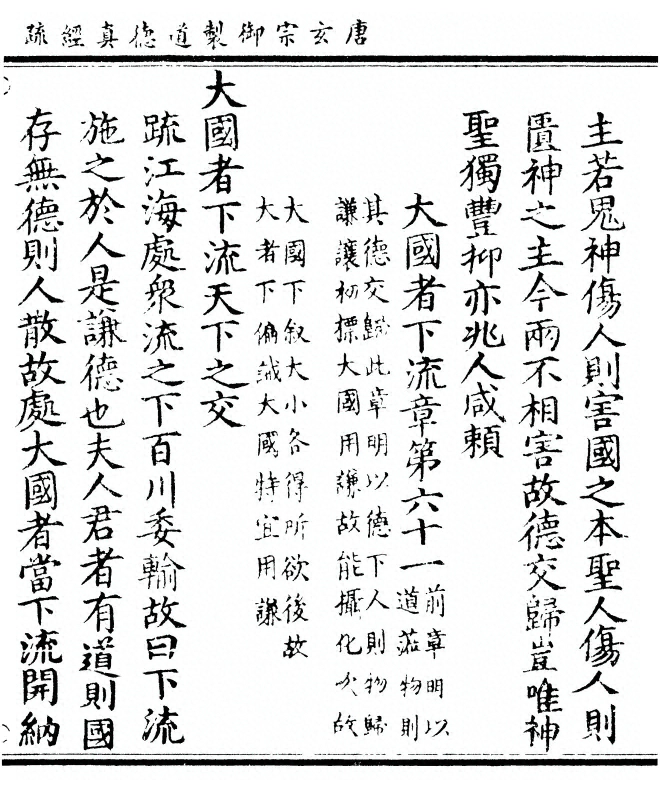 唐玄宗御製道德真經疏
主若鬼神傷人則害國之本聖人傷人則
匱神之主今兩不相害故德交歸豈唯神
聖獨豐抑亦兆人咸賴
大國者下流章第六十一
前章明以
道蒞物則
其德交歸此章明以德下人則物歸
謙讓初標大國用謙故能攝化次故
大國下叙大小各得所欲後故
大者下偏誡大國特宜用謙
大國者下流天下之交
疏江海處衆流之下百川委輸故曰下流
施之於人是謙德也夫人君者有道則國
存無德則人散故處大國者當下流開納